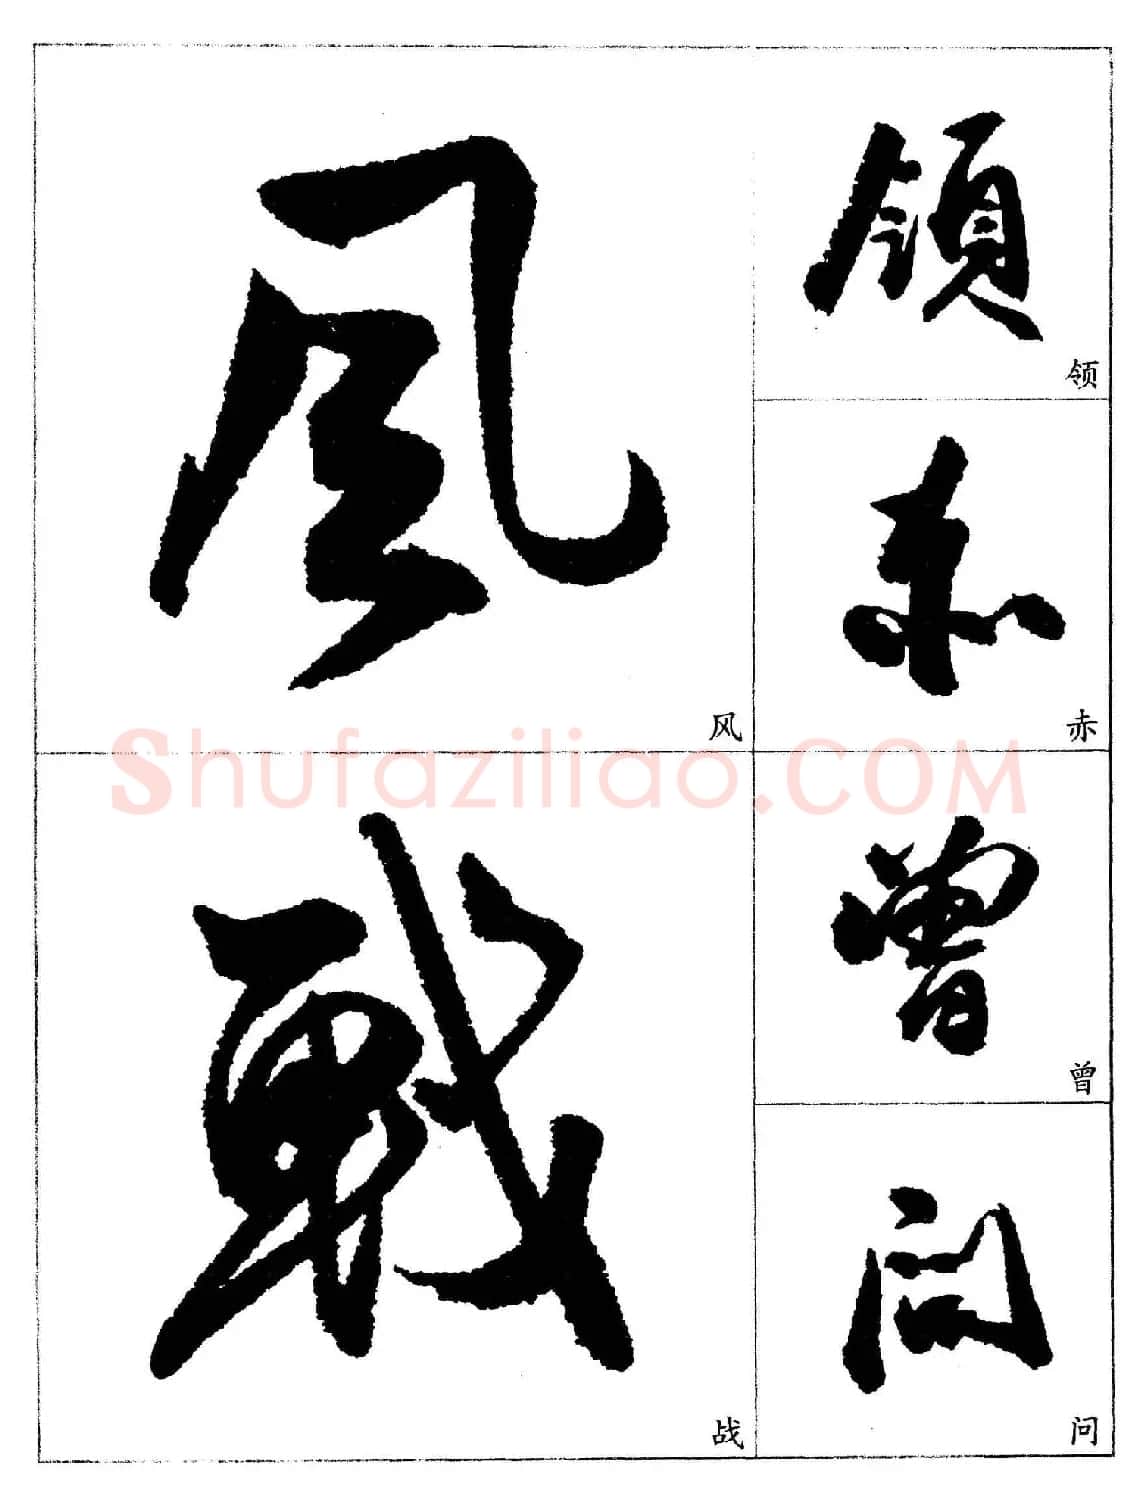 風
风
戰
战
領
领
赤
赤
曾
曾
问
问
Shufaziliao.COM